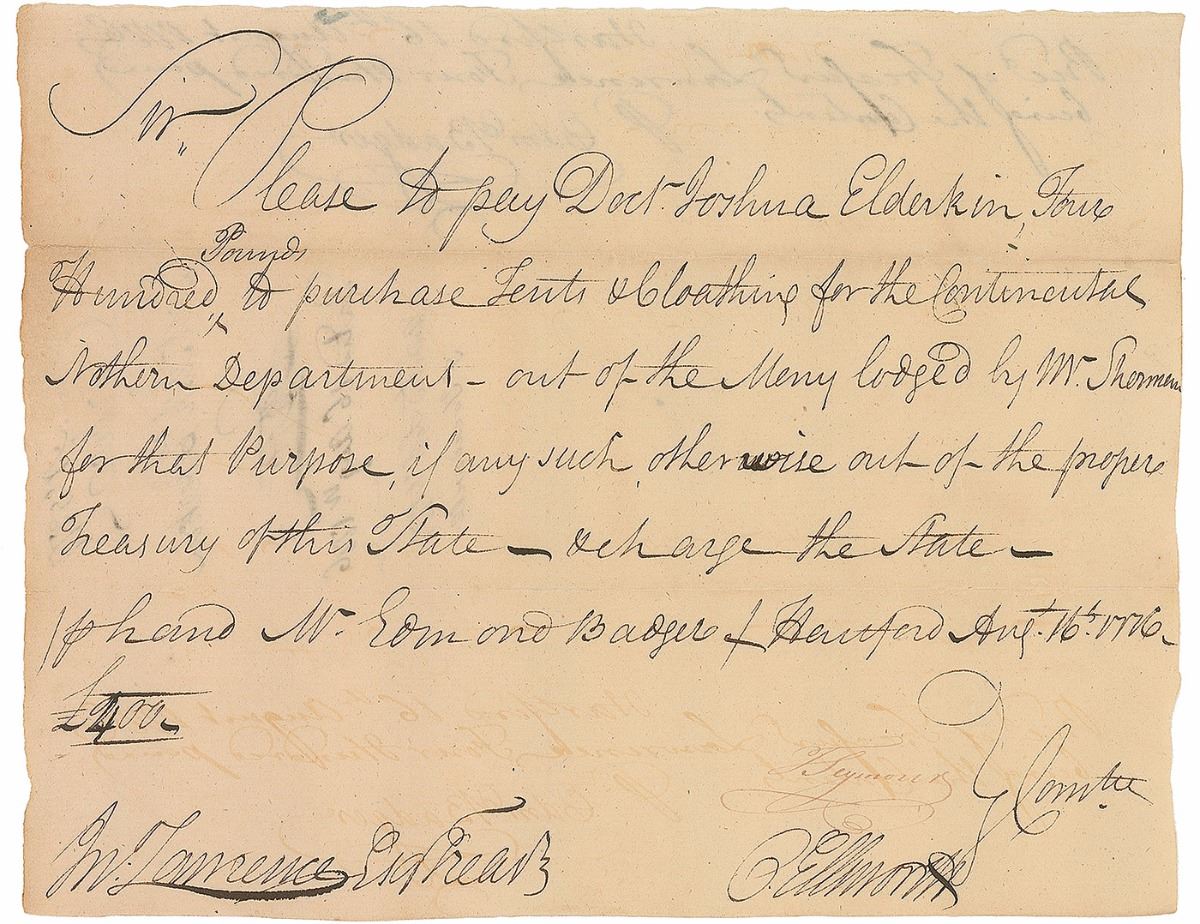 Sir,,
Please to pay Doctr. Joshua Elderkin, Four
Pounds
Hundred,, to purchase Tents & Cloathing for the Continental
Nothern Department – out of the Mony lodged by Mr. Sherman
for that Purpose, if any such, otherwise out of the proper
Treasury of this State – & charge the State –
hand Mr. Edmond Badger Hartford Augt. 16th. 1776 –
£400 –
T Seymour
Comtee
Jno. Lawrence Esqr Treasr
O Ellsworth